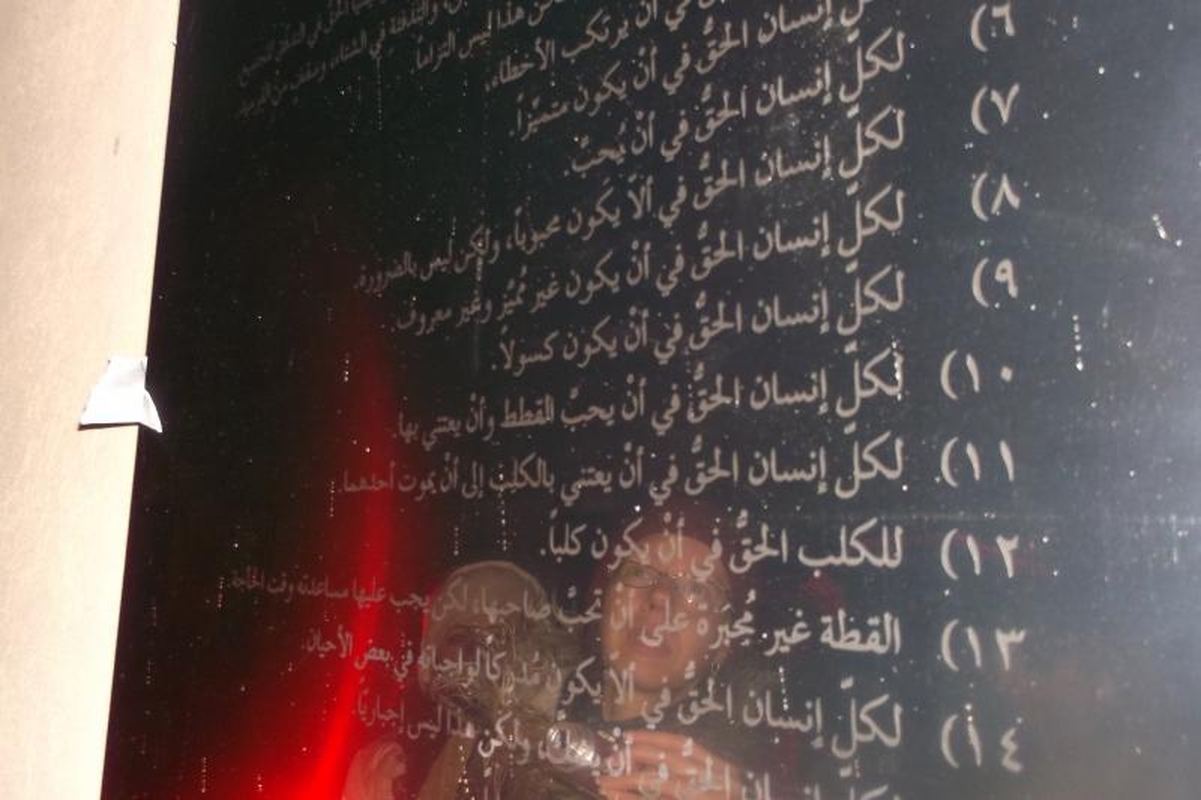 هذا ليس التزاماً
في أنْ يرتكب الأخطاء.
إنسان الحقُّ في أنْ يكون متميّزاً.
٦) لكلّ إنسان الحقُّ في أنْ يُحبّ.
٧) لكلّ إنسان الحقُّ في ألاّ يكون محبوباً، ولكن ليس بالضرورة.
٨) لكلّ إنسان الحقُّ في أنْ يكون غير مُميَّز وغير معروف.
٩) لكلّ إنسان الحقُّ في أنْ يكون كسولاً.
١٠) لكلّ إنسان الحقُّ في أنْ يحبَّ القطط وأنْ يعتني بها.
١١) لكلّ إنسان الحقُّ في أنْ يعتني بالكلب إلى أنْ يموت أحدهما.
١٢) للكلب الحقُّ في أنْ يكون كلباً.
١٣) القطة غير مُجبَرة على أن تحبَّ صاحبها، لكن يجب عليها مساعدته وقت الحاجة.
١٤) لكلّ إنسان الحقُّ في ألا يكون مُدركاً لواجباته في بعض الأحيان.
إنسان الحقُّ في أنْ ولكن هذا ليس إجبارياً.